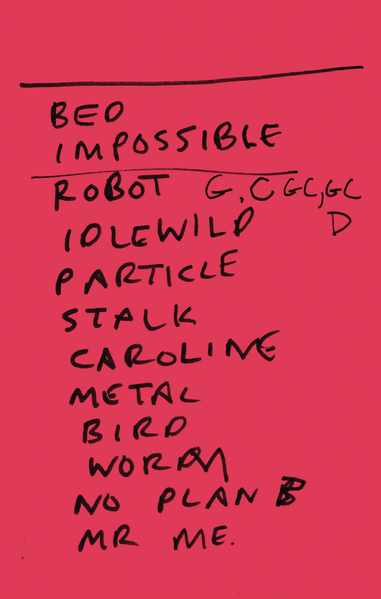 BED
IMPOSSIBLE
ROBOT G, C GC, GC
D
IDLEWILD
PARTICLE
STALK
CAROLINE
METAL
BIRD
WORRY
NO PLAN B
MR ME.